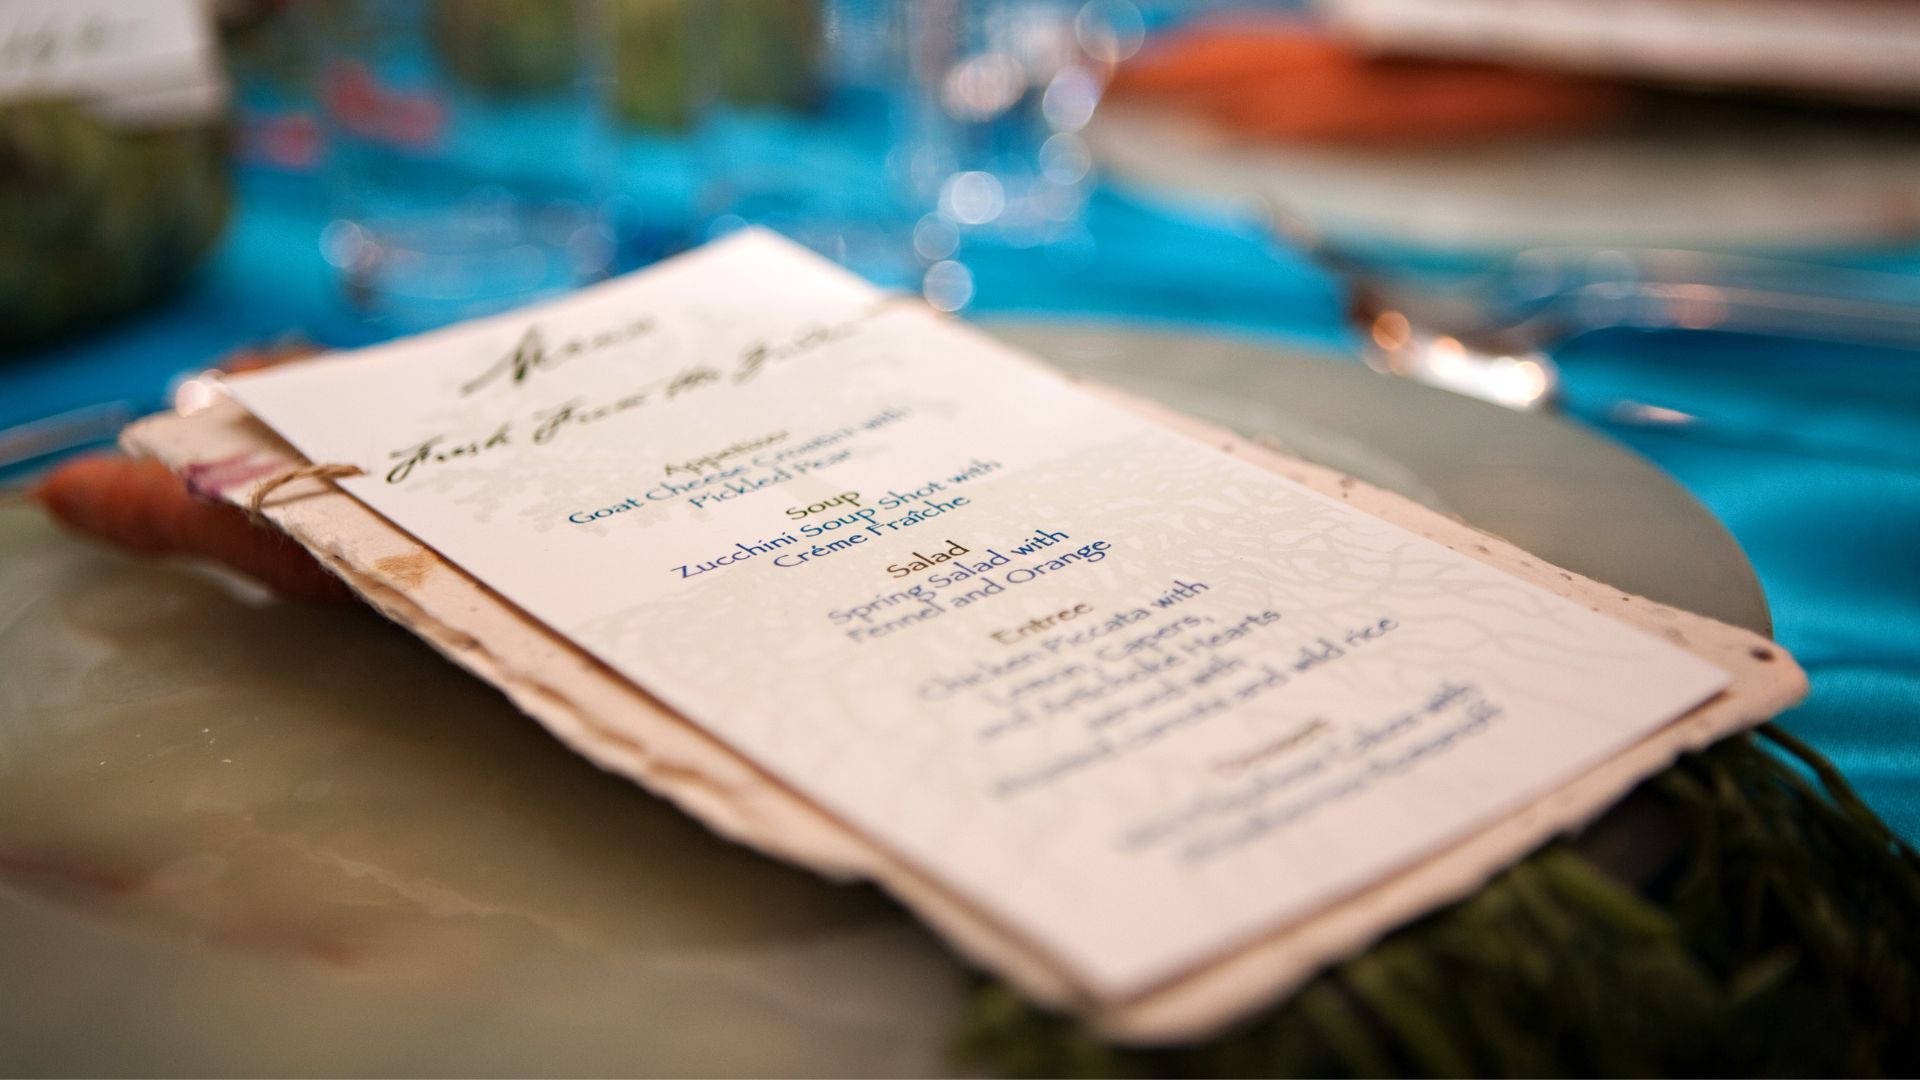 Menu
Fresh From the
Appetizer
Goat Cheese Crostini with
Pickled Pear
Soup
Zucchini Soup Shot with
Créme Fraîche
Salad
Spring Salad with
Fennel and Orange
Entree
Chicken Piccata with
Lemon, Capers,
and Artichoke Hearts
served with
carrots and wild rice
Dessert
with